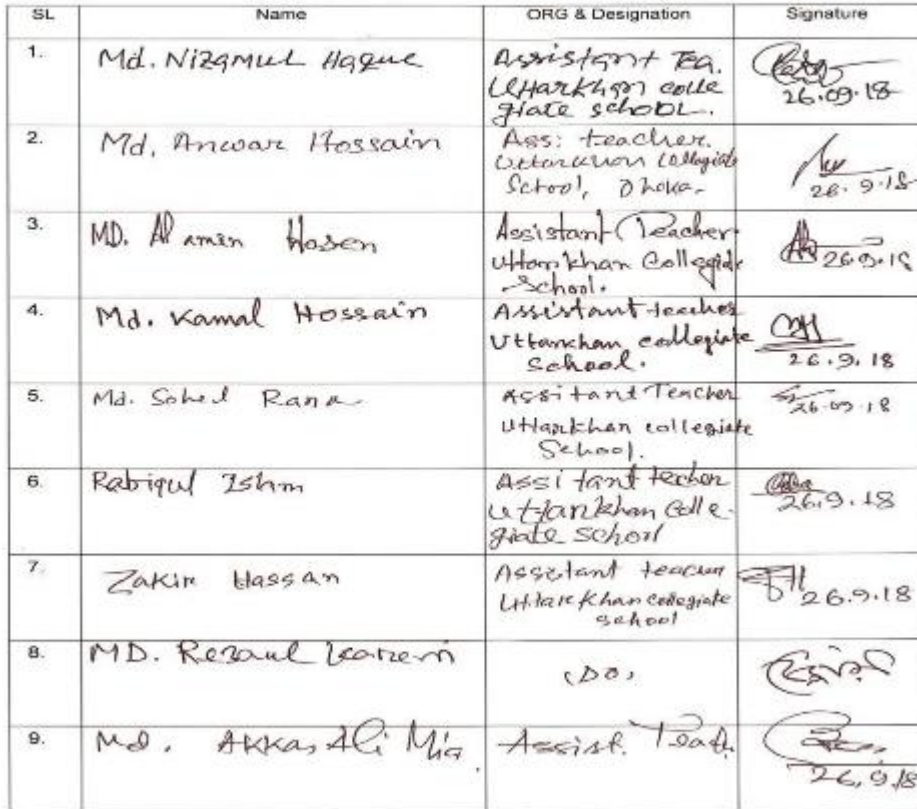 SL Name ORG & Designation Signature
1. Md. Nizamul Haque Assistant Tea.
Uttarkhan colle
giate school.
26.09.18
2. Md. Anwar Hossain Ass: teacher.
Uttarkhan Collegiate
School, Dhaka.
26.9.18
3. MD. Al amin Hosen Assistant Teacher
Uttarkhan Collegiate
School.
26.9.18
4. Md. Kamal Hossain Assistant teacher
Uttarkhan collegiate
School.
26.9.18
5. Md. Sohel Rana Assitant Teacher
Uttarkhan collegiate
School.
26.09.18
6. Rabiqul Islm Assitant techer
Uttarkhan Colle-
giate School
26.9.18
7. Zakir Hassan Assistant teacher
Uttarkhan collegiate
school
26.9.18
8. MD. Rezaul Karem (DO)
9. Md. Akkas Ali Mia Assist. Teach.
26.9.18